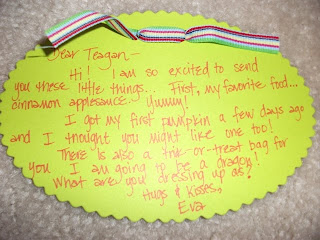 Dear Teagan-
Hi! I am so excited to send
you these little things... First, my favorite food...
cinnamon applesauce. Yummy!
I got my first pumpkin a few days ago
and I thought you might like one too!
There is also a trick-or-treat bag for
you. I am going to be a dragon!
What are you dressing up as?
Hugs & Kisses,
Eva